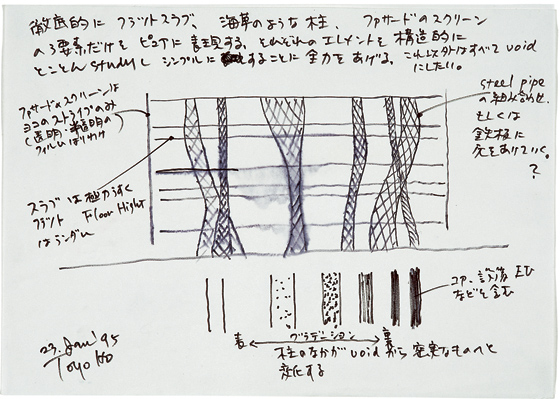 徹底的に フラットスラブ、海草のような柱、ファサードのスクリーン
の3要素だけを ピュアに表現する。それぞれのエレメントを構造的に
とことん studyし シンプルに することに全力をあげる。これ以外はすべて void
にしたい。
ファサードのスクリーンは
ヨコのストライプのみ
(透明・半透明の
フィルムはりわけ
スラブは極力うすく
フラット Floor Hight
はランダム
steel pipe
の組み合わせ
もしくは
鉄板に
穴をあけていく。
?
コア、設備 EV
などを含む
表 グラデーション 裏
柱のなかが void から 密実なものへと
変化する
23. Jan '95
Toyo Ito